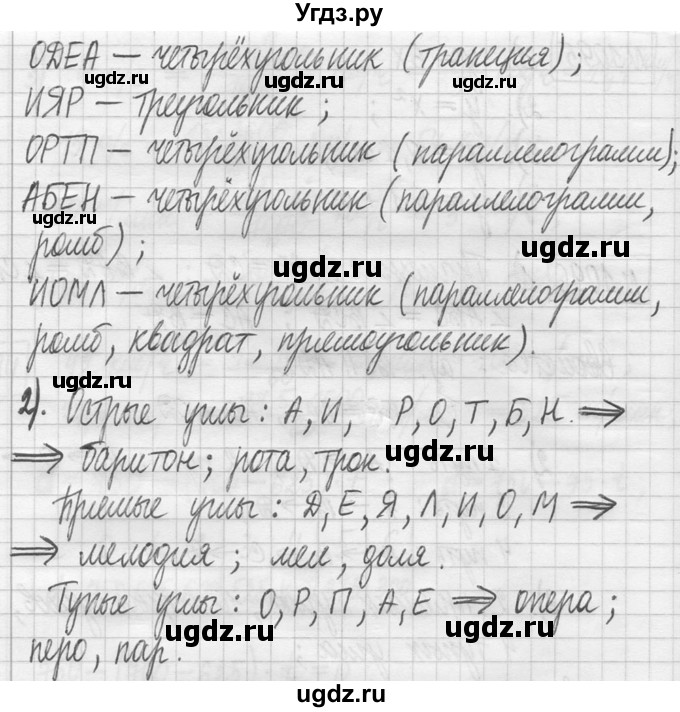 Угдз.ру
ОДЕА — четырёхугольник (трапеция);
ugdz.ru ugdz.ru
ИЯР — треугольник;
ОРТП — четырёхугольник (параллелограмм);
ugdz.ru ugdz.ru
АБЕН — четырёхугольник (параллелограмм,
ugdz.ru
ромб);
ugdz.ru ugdz.ru
ИОМЛ — четырёхугольник (параллелограмм,
ромб, квадрат, прямоугольник).
ugdz.ru
2). Острые углы: А, И, Р, О, Т, Б, Н. ⇒
⇒ баритон; рота, трок.
ugdz.ru
Прямые углы: Д, Е, Я, Л, И, О, М ⇒
⇒ мелодия; мел, доля.
Тупые углы: О, Р, П, А, Е ⇒ опера;
ugdz.ru ugdz.ru
перо, пар.
ugdz.ru